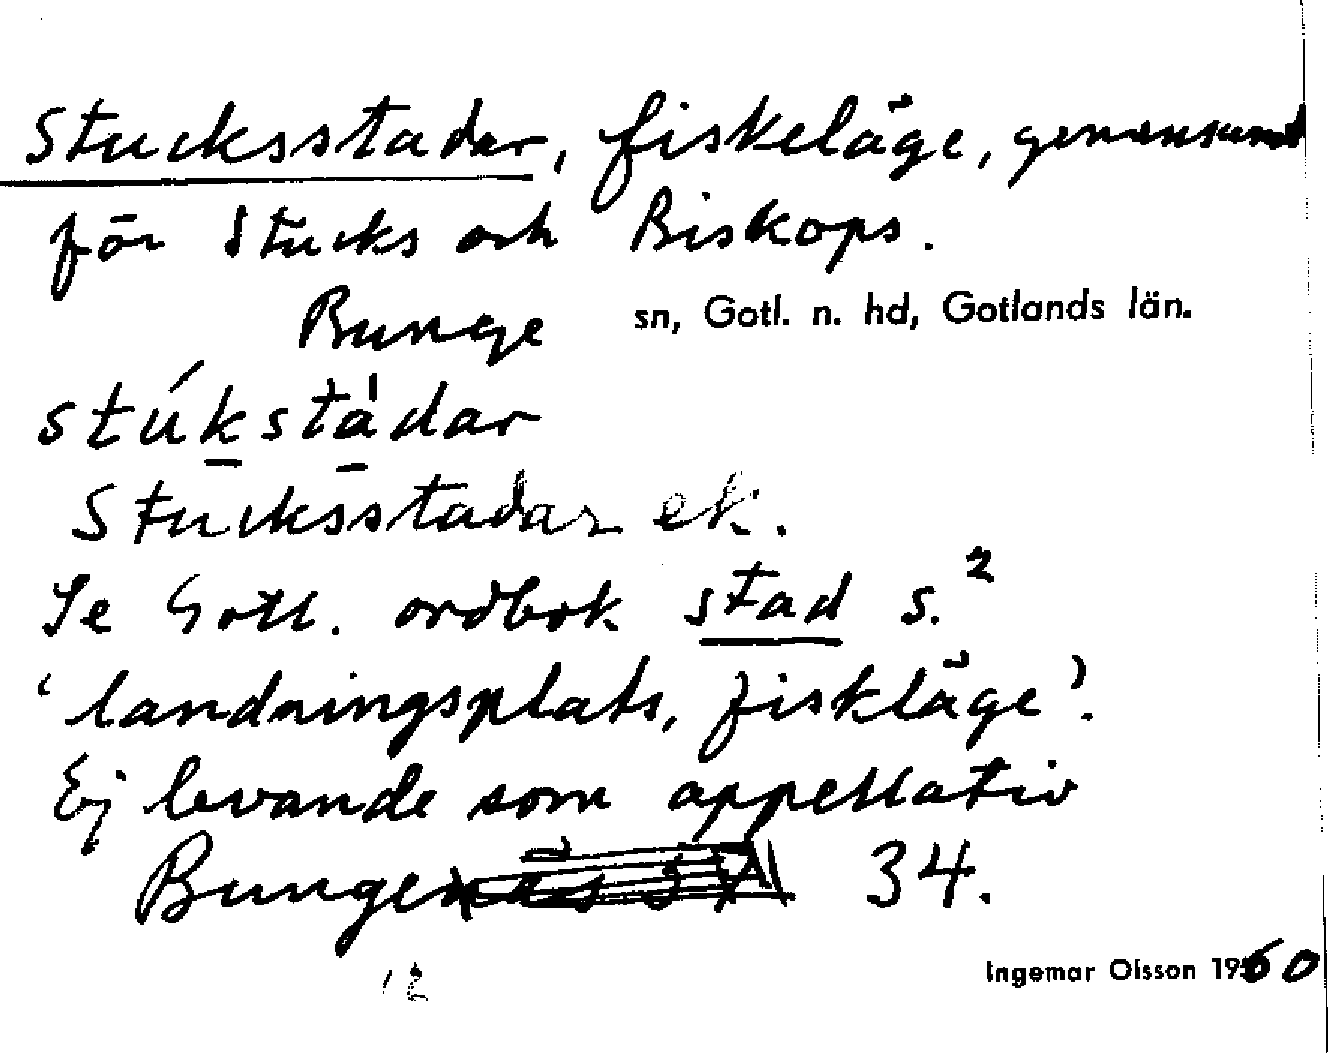 Stucksstadar, fiskeläge, gemensamt
för Stucks och Biskops.
Bunge sn, Gotl. n. hd, Gotlands län.
stúkstàdar
Stucksstadar ek.
Se Gotl. ordbok stad s.²
'landningsplats, fiskläge'.
Ej levande som appellativ
Bunge 34.
12
Ingemar Olsson 1960